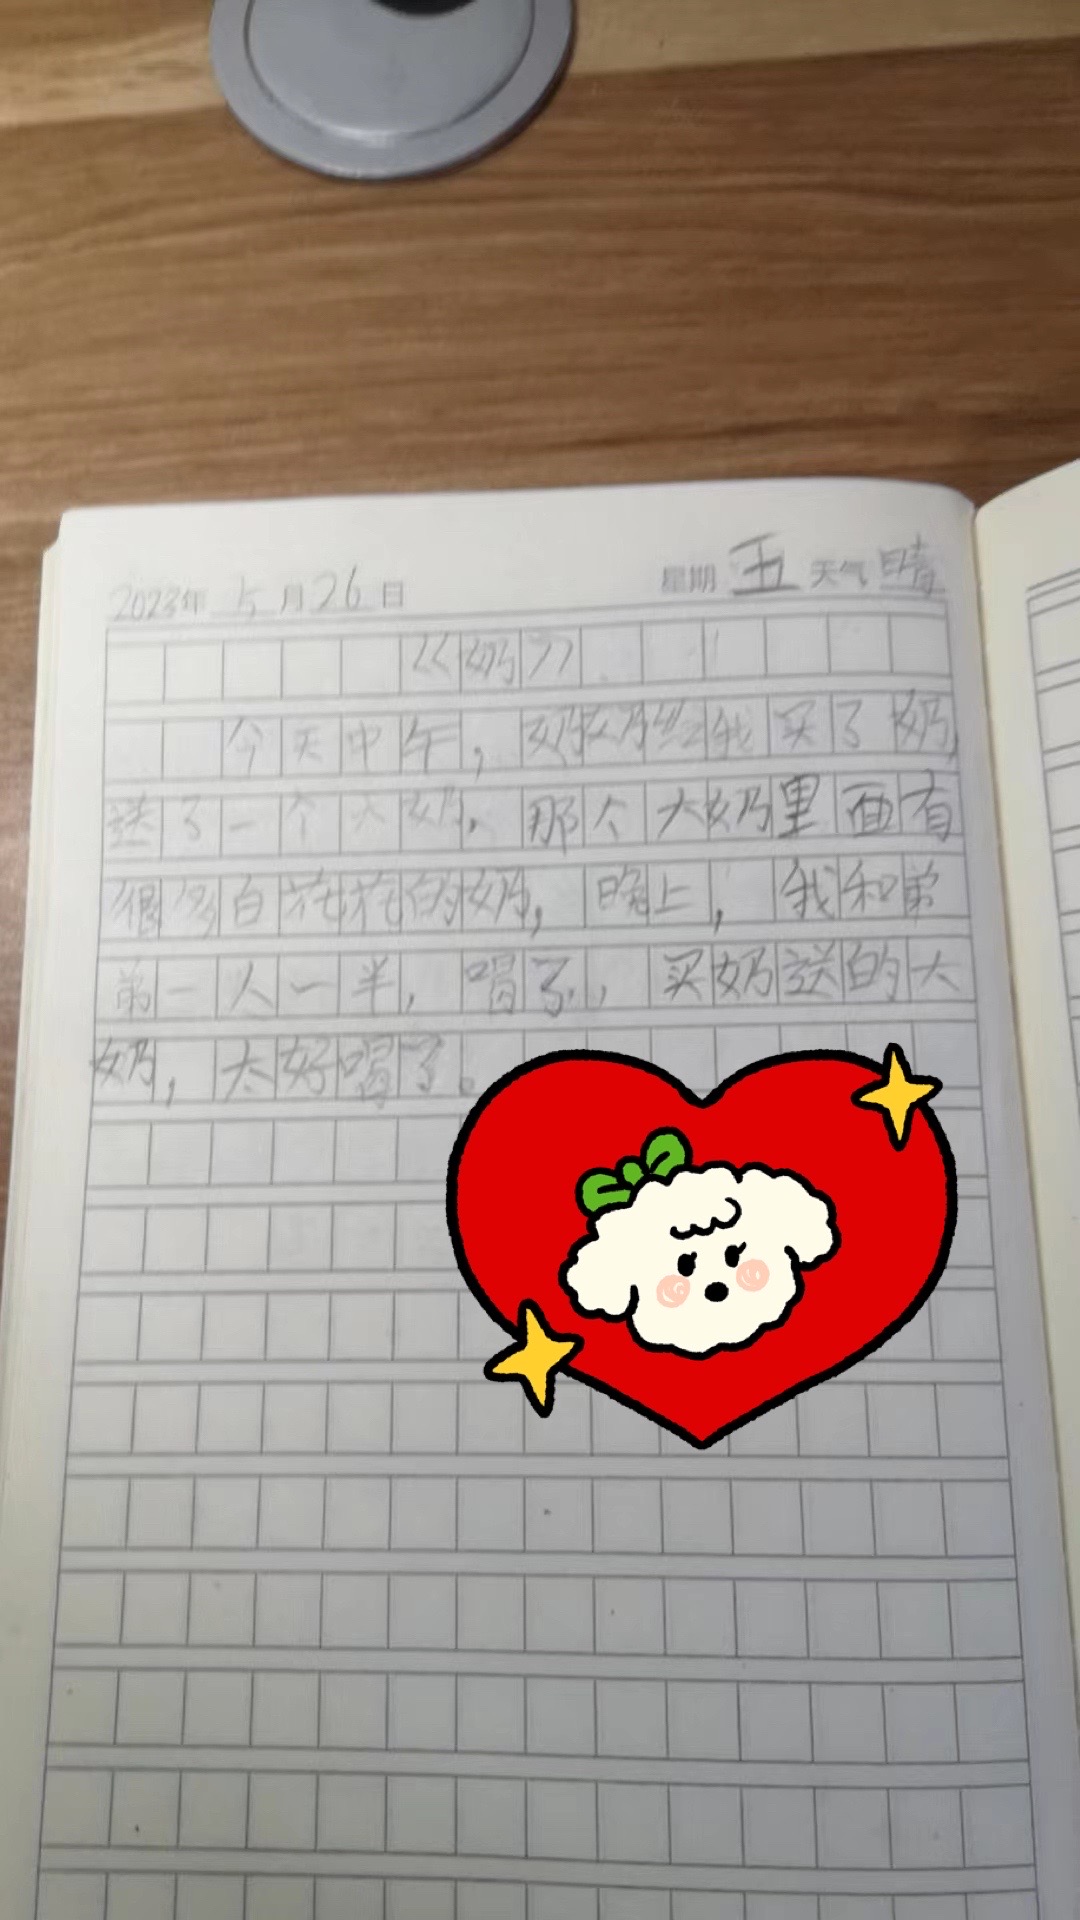 2023年 5月26日 星期五 天气晴
《奶》
今天中午，奶奶给我买了奶，
送了一个大奶，那个大奶里面有
很多白花花的奶，晚上，我和弟
弟一人一半，喝了，买奶送的大
奶，太好喝了。